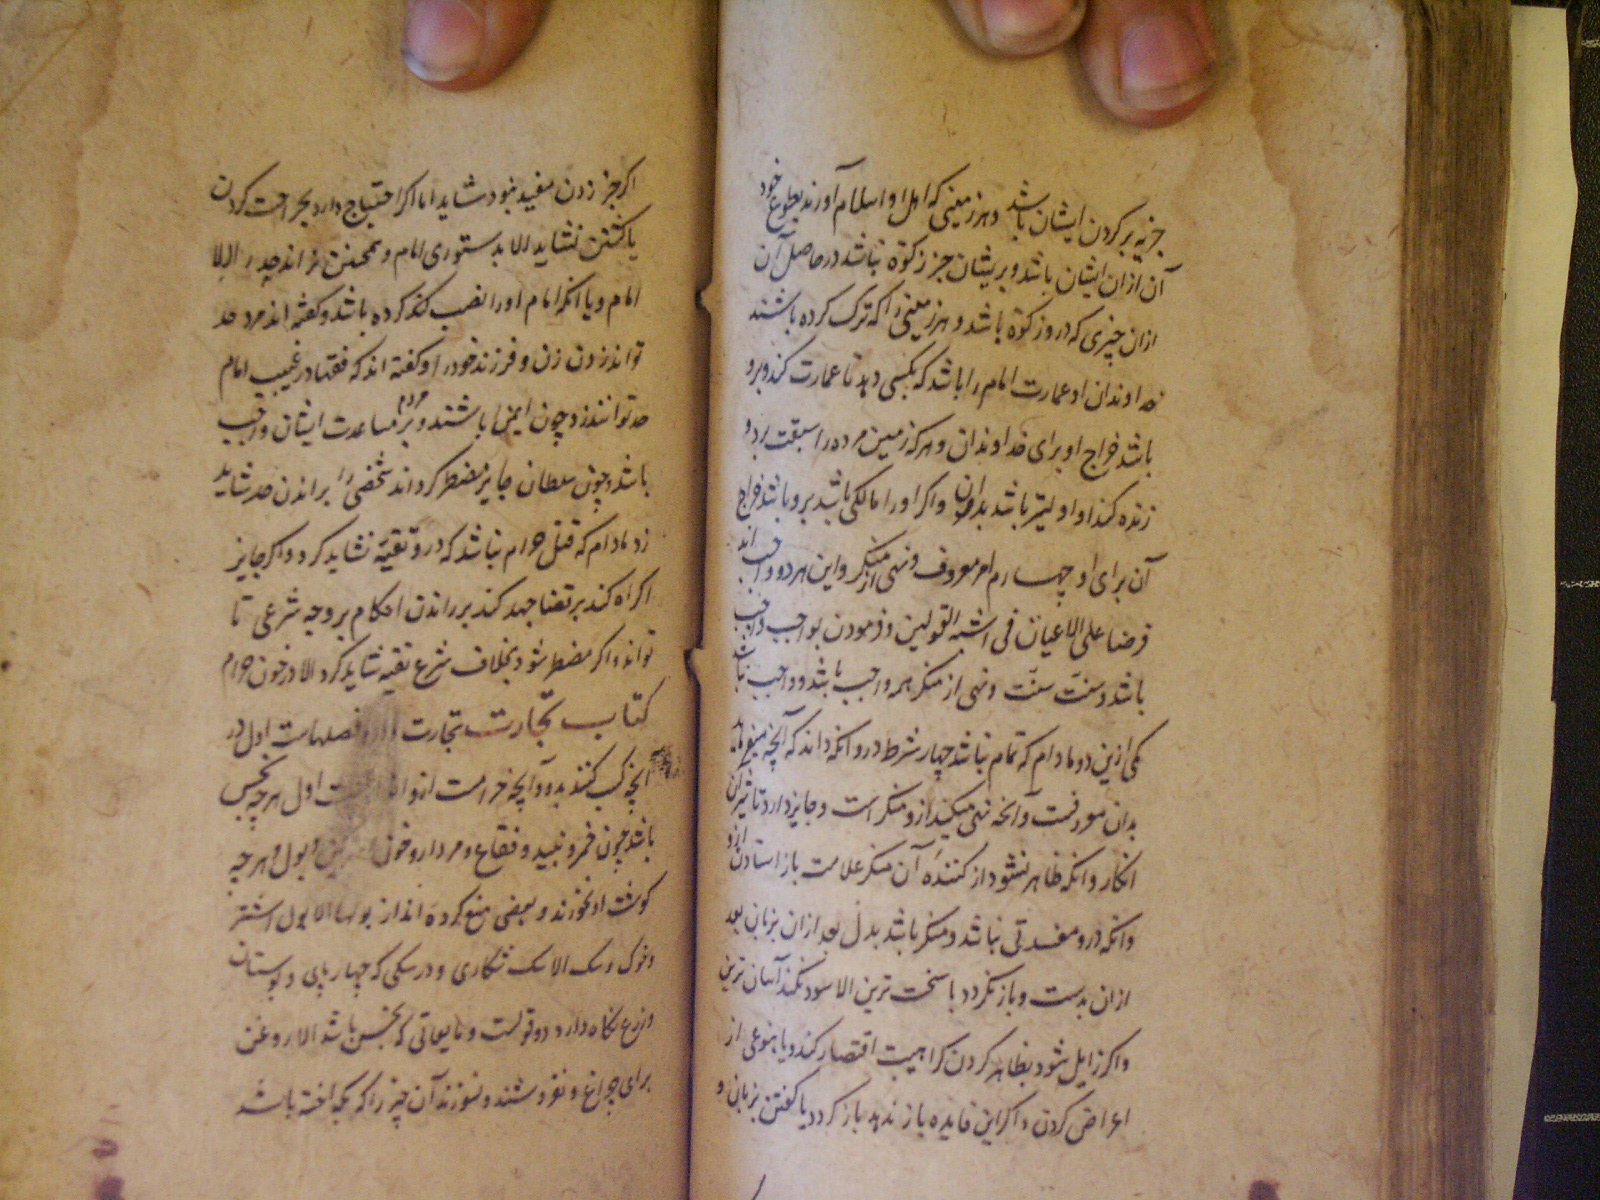 جزیه بر کردن ایشان باشد و هر زمینی که اهل او اسلام آورند بطوع خود
آن ازان ایشان باشد و بریشان جز زکوة نباشد در حاصل آن
ازان چیزی که درو زکوة باشد و هر زمینی را که ترک کرده باشند
خداوندان او عمارت امام را باشد که بکسی دهد تا عمارت کند و برو
باشد خراج او برای خداوندان و هر که زمین مرده را سبقت برد و
زنده کند او اولیتر باشد بدان و اکر او را مالکی باشد برو باشد خراج
آن برای او چهارم امر معروف و نهی از منکر و این هر دو واجب اند
فرضا علی الاعیان فی اشبه القولین و فرمودن بواجب واجب
باشد و سنت سنت و نهی از منکر همه واجب باشد و واجب نباشد
یکی ازین دو مادام که تمام نباشد چهار شرط درو انکه داند که آنچه
بدان معروفست و آنچه نهی میکند ازو منکر است و جایز دارد تاثیر آن
انکار و انکه ظاهر نشود از کننده آن منکر علامت باز استادن ازو
وانکه درو مفسدتی نباشد و منکر باشد بدل بعد ازان بزبان بعد
ازان بدست و باز نکردد با سخت ترین الا سود نکند آسان ترین
و اکر زایل شود بظاهر کردن کراهیت اقتصار کند و یا بنوعی از
اعراض کردن و اکر این فایده باز ندهد باز کردد با کفتن بزبان و
اکر جز زدن مفید نبود شاید اما اکر احتیاج دارد بجراحت کردن
یا کشتن نشاید الا بدستوری امام و همچنین نراند حدرا الا
امام و یا انکه امام او را نصب کرده باشد و کفته اند مرد حد
تواند زدن زن و فرزند خود را و کفته اند که فقها در غیبت امام
حد توانند زد چون ایمن باشند و بر مردم مساعدت ایشان واجب
باشد و چون سلطان جایز مضطر کرداند شخصی را براندن حد شاید
زد مادام که قتل حرام نباشد که درو تقیه نشاید کرد و اکر جایز
اکراه کند بر قضا جهد کند بر راندن احکام بر وجه شرعی تا
تواند و اکر مضطر شود بخلاف شرع تقیه شاید کرد الا در خون حرام
کتاب تجارت تجارت فصلهاست اول در
آنچه کسب کنند بدو و آنچه حرامست اول هر چه نجس
باشد چون خمر و نبید و فقاع و مردار و خون و بول هر چه
کوشت او نخورند و بعضی منع کرده اند از بولها الا بول اشتر
و خوک و سک الا سک شکاری و در سکی که چهار پای و بوستان
و زرع نکاه دارد دو قولست و مایعاتی که نجس باشد الا روغن
برای چراغ و نفروشند و نسوزند آن چیز را که بکداخته باشد